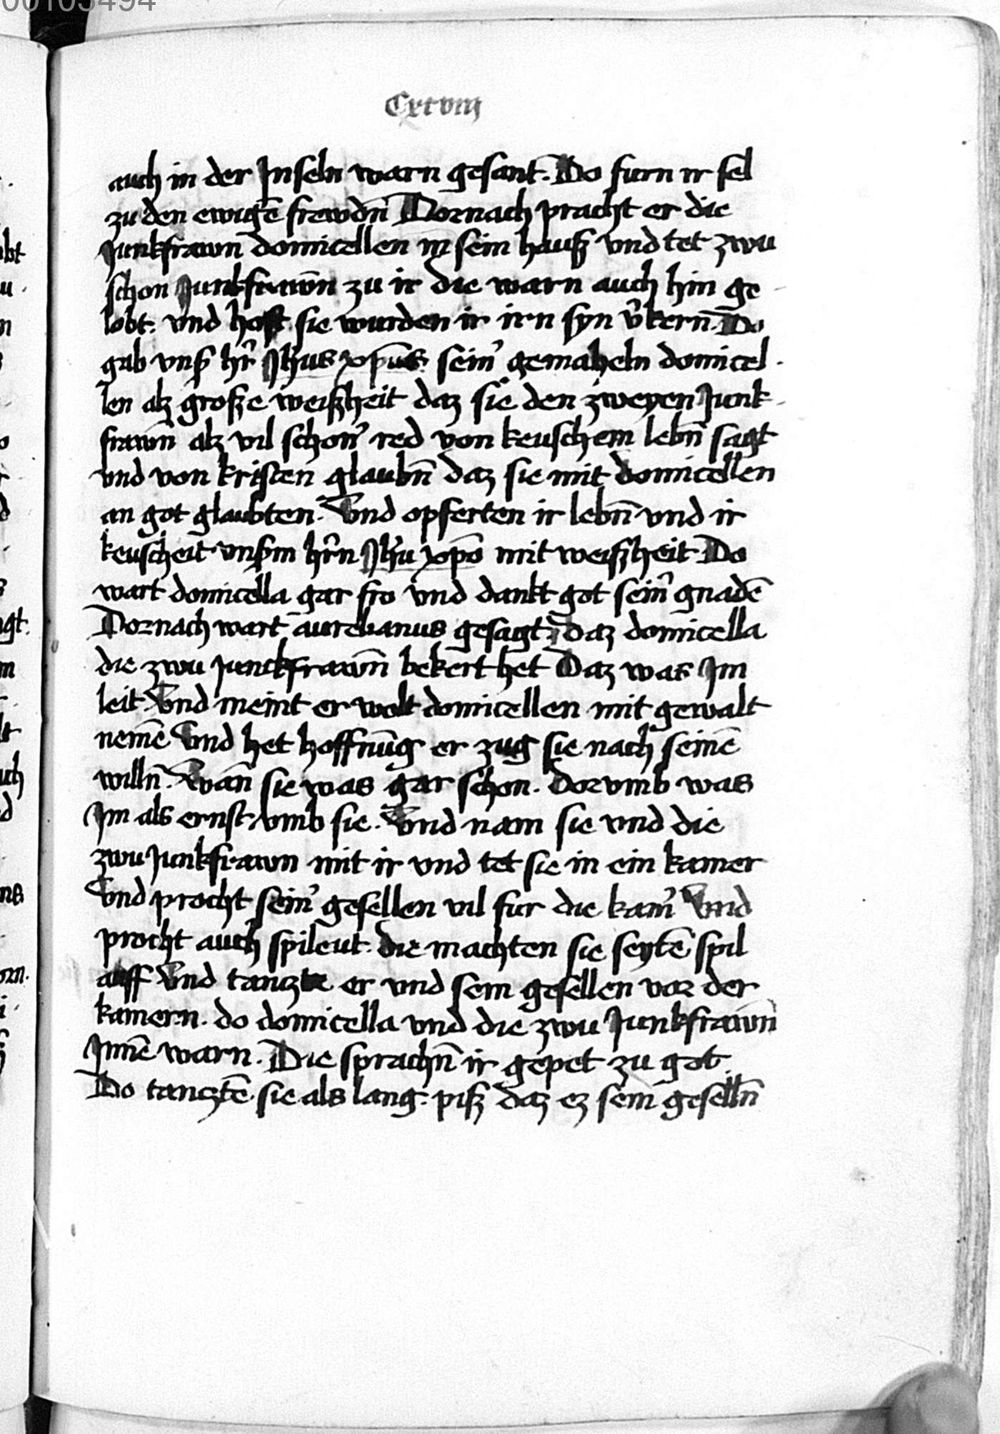 00103494
Cxcviij
auch in der Jnseln warn gesant. Do furn ir sel
zu den ewigē frewdn̄ Dornach pracht er die
Junkfrawn domicellen in sein hauß vnd tet zwu
schon Junkfrawn̄ zu ir die warn auch hin ge
lobt. vnd hoft sie wurden ir irn syn v̄kern. Do
gab vnß hr̄ Jħus xp̄us sein̾ gemaheln domicel
len alz große weißheit daz sie den zweyen Junk
frawn̄ alz vil schon̾ red von keuschem lebn̄ sagt
vnd von kristen glaubn̄ daz sie mit domicellen
an got glaubten. Vnd opferten ir lebn̄ vnd ir
keuscheit vnßm hr̄n Jħu xp̄o mit weißheit Do
wart domicella gar fro vnd dankt got sein̾ gnadē
Dornach wart aurelianus gesagt daz domicella
die zwu junckfrawn̄ bekert het Daz was Jm
leit Vnd meint er wolt domicellen mit gewalt
nemē Vnd het hoffnūg er zug sie nach seinē
willn̄. Wan̄ sie was gar schon. Dorvmb was
Jm als ernst vmb sie. Vnd nam sie vnd die
zwu Junkfrawn mit ir vnd tet sie in ein kamer
Vnd procht sein̾ gesellen vil fur die kam̾ Vnd
procht auch spileut. die machten sie seytē spil
auff Vnd tanzte er vnd sein gesellen vor der
kamern. do domicella vnd die zwu Junkfrawn̄
Jnnē warn. Die sprachn̄ ir gepet zu got.
Do tancztē sie als lang. piß daz ez sein geselln̄